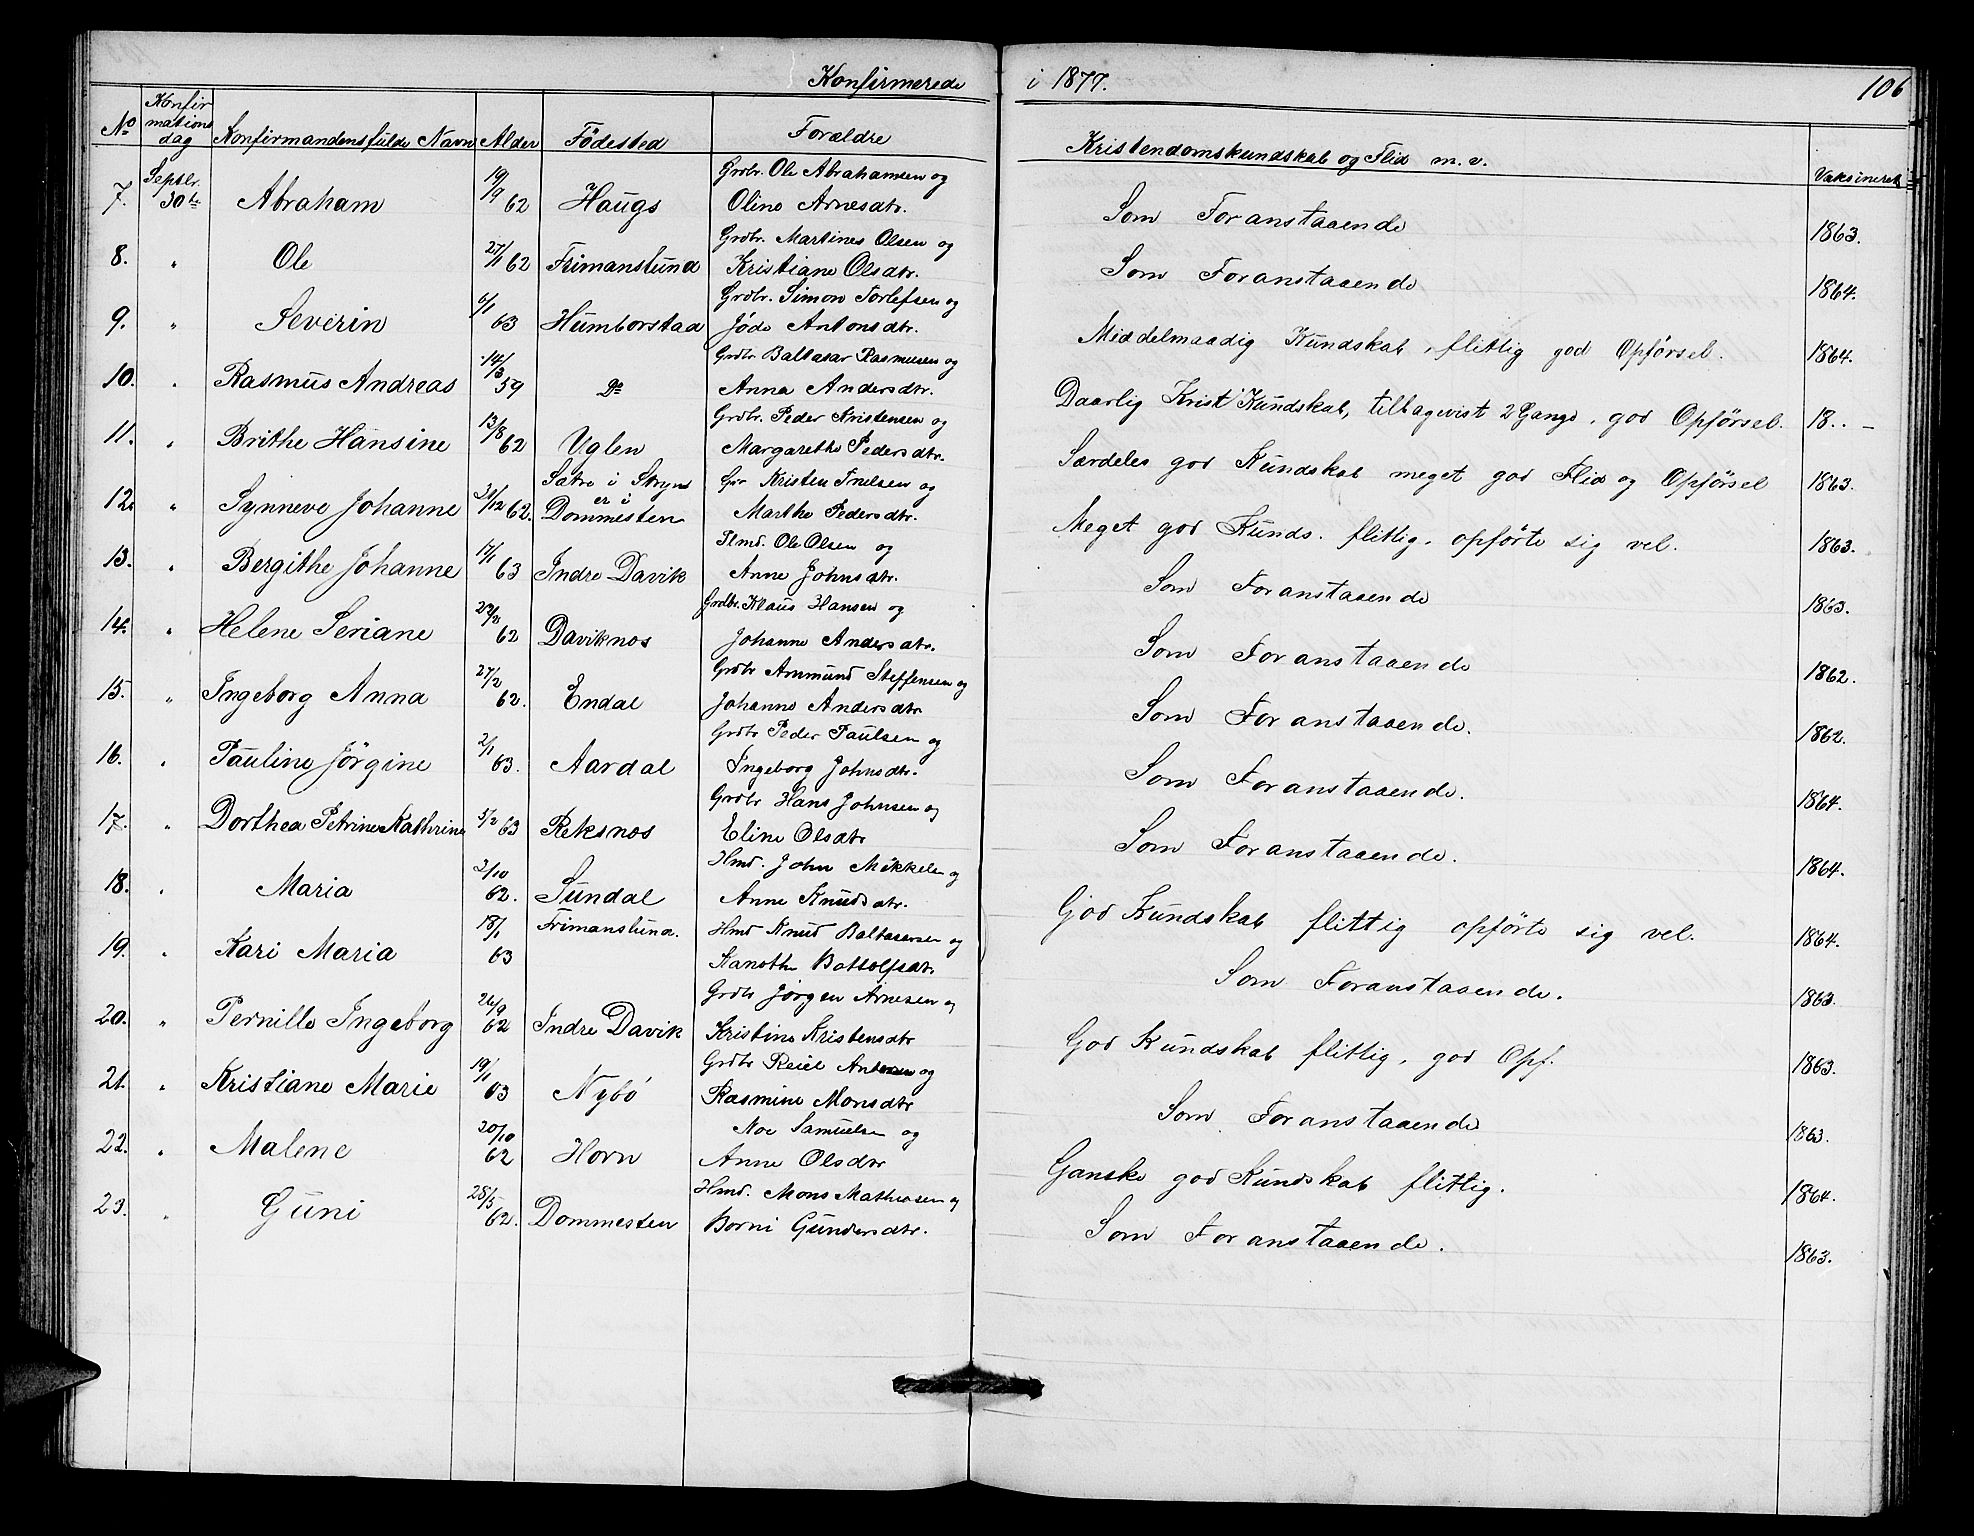 Konfirmerede i 1877. 106
No Konfirmationsdag Konfirmandens fulde Navn Alder Födested Forældre Kristendomskundskab og Flid m. v. Vaksineret
Septbr. 19/9 Grdbr. Ole Abrahamsen og
7. 30te Abraham 62 Haugs Oline Arnesdtr. Som Foranstaaende 1863.
27/11 Grdbr. Martines Olsen og
8. " Ole 62 Frimanslund Kristiane Olsdtr. Som Foranstaaende 1864.
6/1 Grdbr. Simon Torlefsen og
9. " Severin 63 Humborstad Jöde Antonsdtr. Middelmaadig Kundskab, flitlig god Opförsel. 1864.
14/3 Grdbr Baltasar Rasmusen og
10. " Rasmus Andreas 59 Do Anna Andersdtr. Daarlig Krist Kundskab, tilbagevist 2 Gange, god Opförsel. 18..–
13/8 Grdbr. Peder Kristensen og
11. " Brithe Hansine 62 Uglen Margarethe Pedersdtr. Særdeles god Kundskab meget god Flid og Opförsel 1863.
31/12 Sætre i Stryn er i Kristen og
12. " Synneve Johanne 62. Dommesten Marthe Pedersdtr. Meget god Kunds. flitlig, opförte sig vel. 1863.
17/1 Ole Olsen og
13. " Bergithe Johanne 63 Indre Davik Anne Johnsdtr. Som Foranstaaende 1863.
Grdbr. Klaus Hansen og
14. " Helene Seriane 62 Daviknes Johanne Andersdtr. Som Foranstaaende 1862.
27/2 Grdbr Ammund Steffensen og
15. " Ingeborg Anna 62. Endal Johanne Andersdtr Som Foranstaaende. 1862.
2/1 Grdbr Peder Paulsen og
16. " Pauline Jörgine 63. Aardal Ingeborg Johnsdtr. Som Foranstaaende. 1864.
Grdbr Hans Johnsen og
17. " Dorthea Petrine Kathrine 5/2 63 Reksnes Eline Olsdtr Som Foranstaaende. 1864.
3/10 Hmd. John Mikkelsen og
18. " Maria 62. Sundal Anne Knudsdtr. God Kundskab flittig opförte sig vel. 1864.
18/1 Frimanslund. Hmd Knud Baltasersen og
19. " Kari Maria 63 Bottolfsdtr Som Foranstaaende. 1863.
26/9 Grdbr Jörgen Arnesen og
20. " Pernille Ingeborg 62 Indre Davik Kristine Kristensdtr God Kundskab flitlig, god Opf. 1863.
19/1 Grdbr Reiel Antonsen og
21. " Kristiane Marie 63 Nybö Rasmine Monsdtr Som Foranstaaende 1863.
20/10 Noe Samuelsen og
22. " Malene 62 Horn Anne Olsdtr Ganske god Kundskab flitlig. 1864.
28/5 Hmd. Mons Mathiasen og
23. " Guni 62. Dommesten Borni Gundersdtr. Som Foranstaaende. 1863.